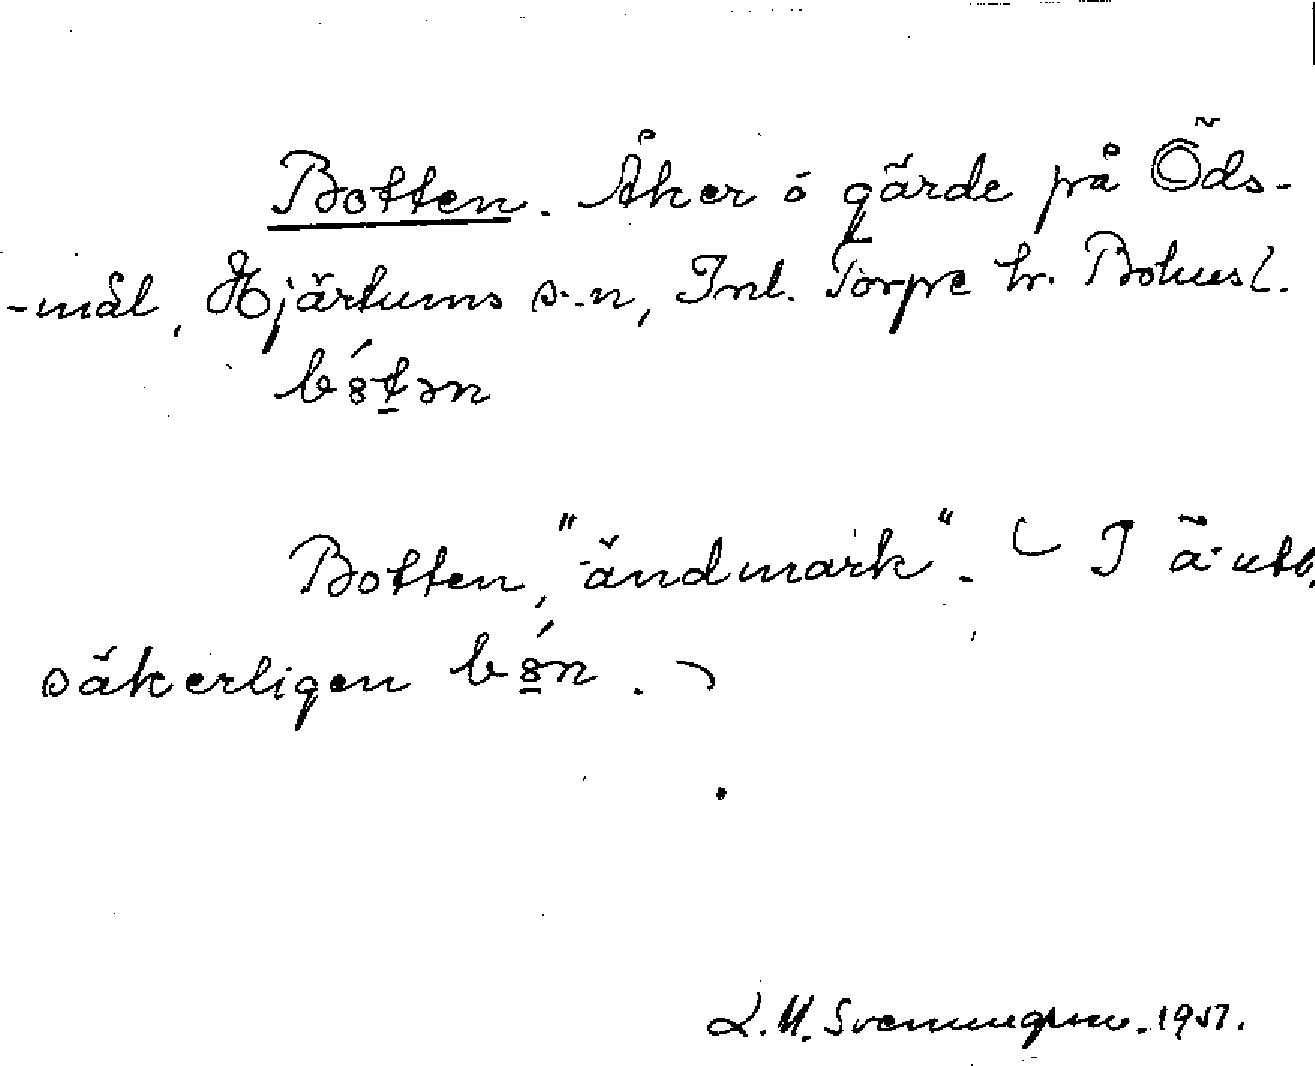 Botten. Åker ó gärde på Öds-
-mål, Hjärtums s-n, Inl. Torpe hr. Bohusl.
Botten, "ändmark". I ä. utt.
säkerligen
L.M. Svenungsson. 1957.